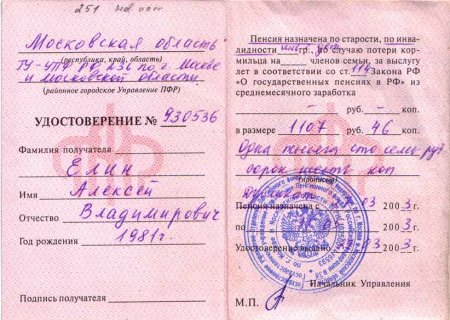 251
Московская область
(республика, край, область)
ГУ-УПФ РФ №36 по г. Москве
и Московской области
(районное городское Управление ПФР)
УДОСТОВЕРЕНИЕ № 930536
Фамилия получателя
Елин
Имя Алексей
Отчество Владимирович
Год рождения
1981г
Подпись получателя
Пенсия назначена по старости, по инва-
лидности гр., по случаю потери кор-
мильца на членов семьи, за выслугу
лет в соответствии со ст. 114 Закона РФ
«О государственных пенсиях в РФ» из
среднемесячного заработка
— руб. — коп.
в размере 1107 руб. 46 коп.
Одна тысяча сто семь руб
сорок шесть коп
(прописью)
Пенсия назначена с 03 2003 г.
по 200
Удостоверение выдано 03 2003 г.
Начальник Управления
М.П.